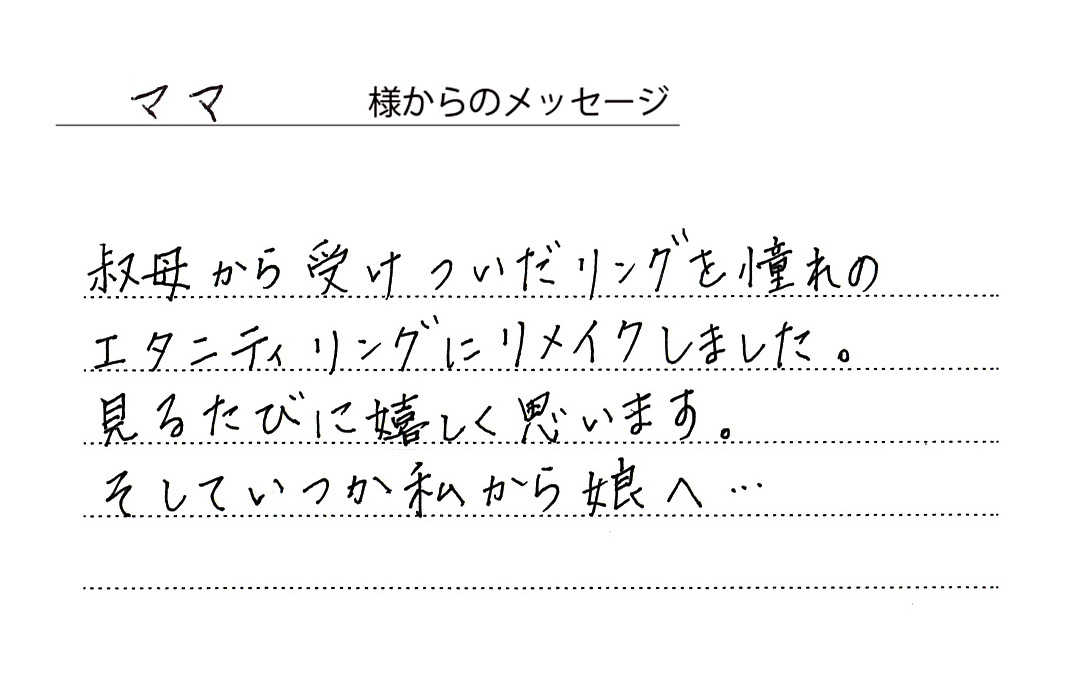 ママ 様からのメッセージ
叔母から受けついだリングを憧れの
エタニティリングにリメイクしました。
見るたびに嬉しく思います。
そしていつか私から娘へ…